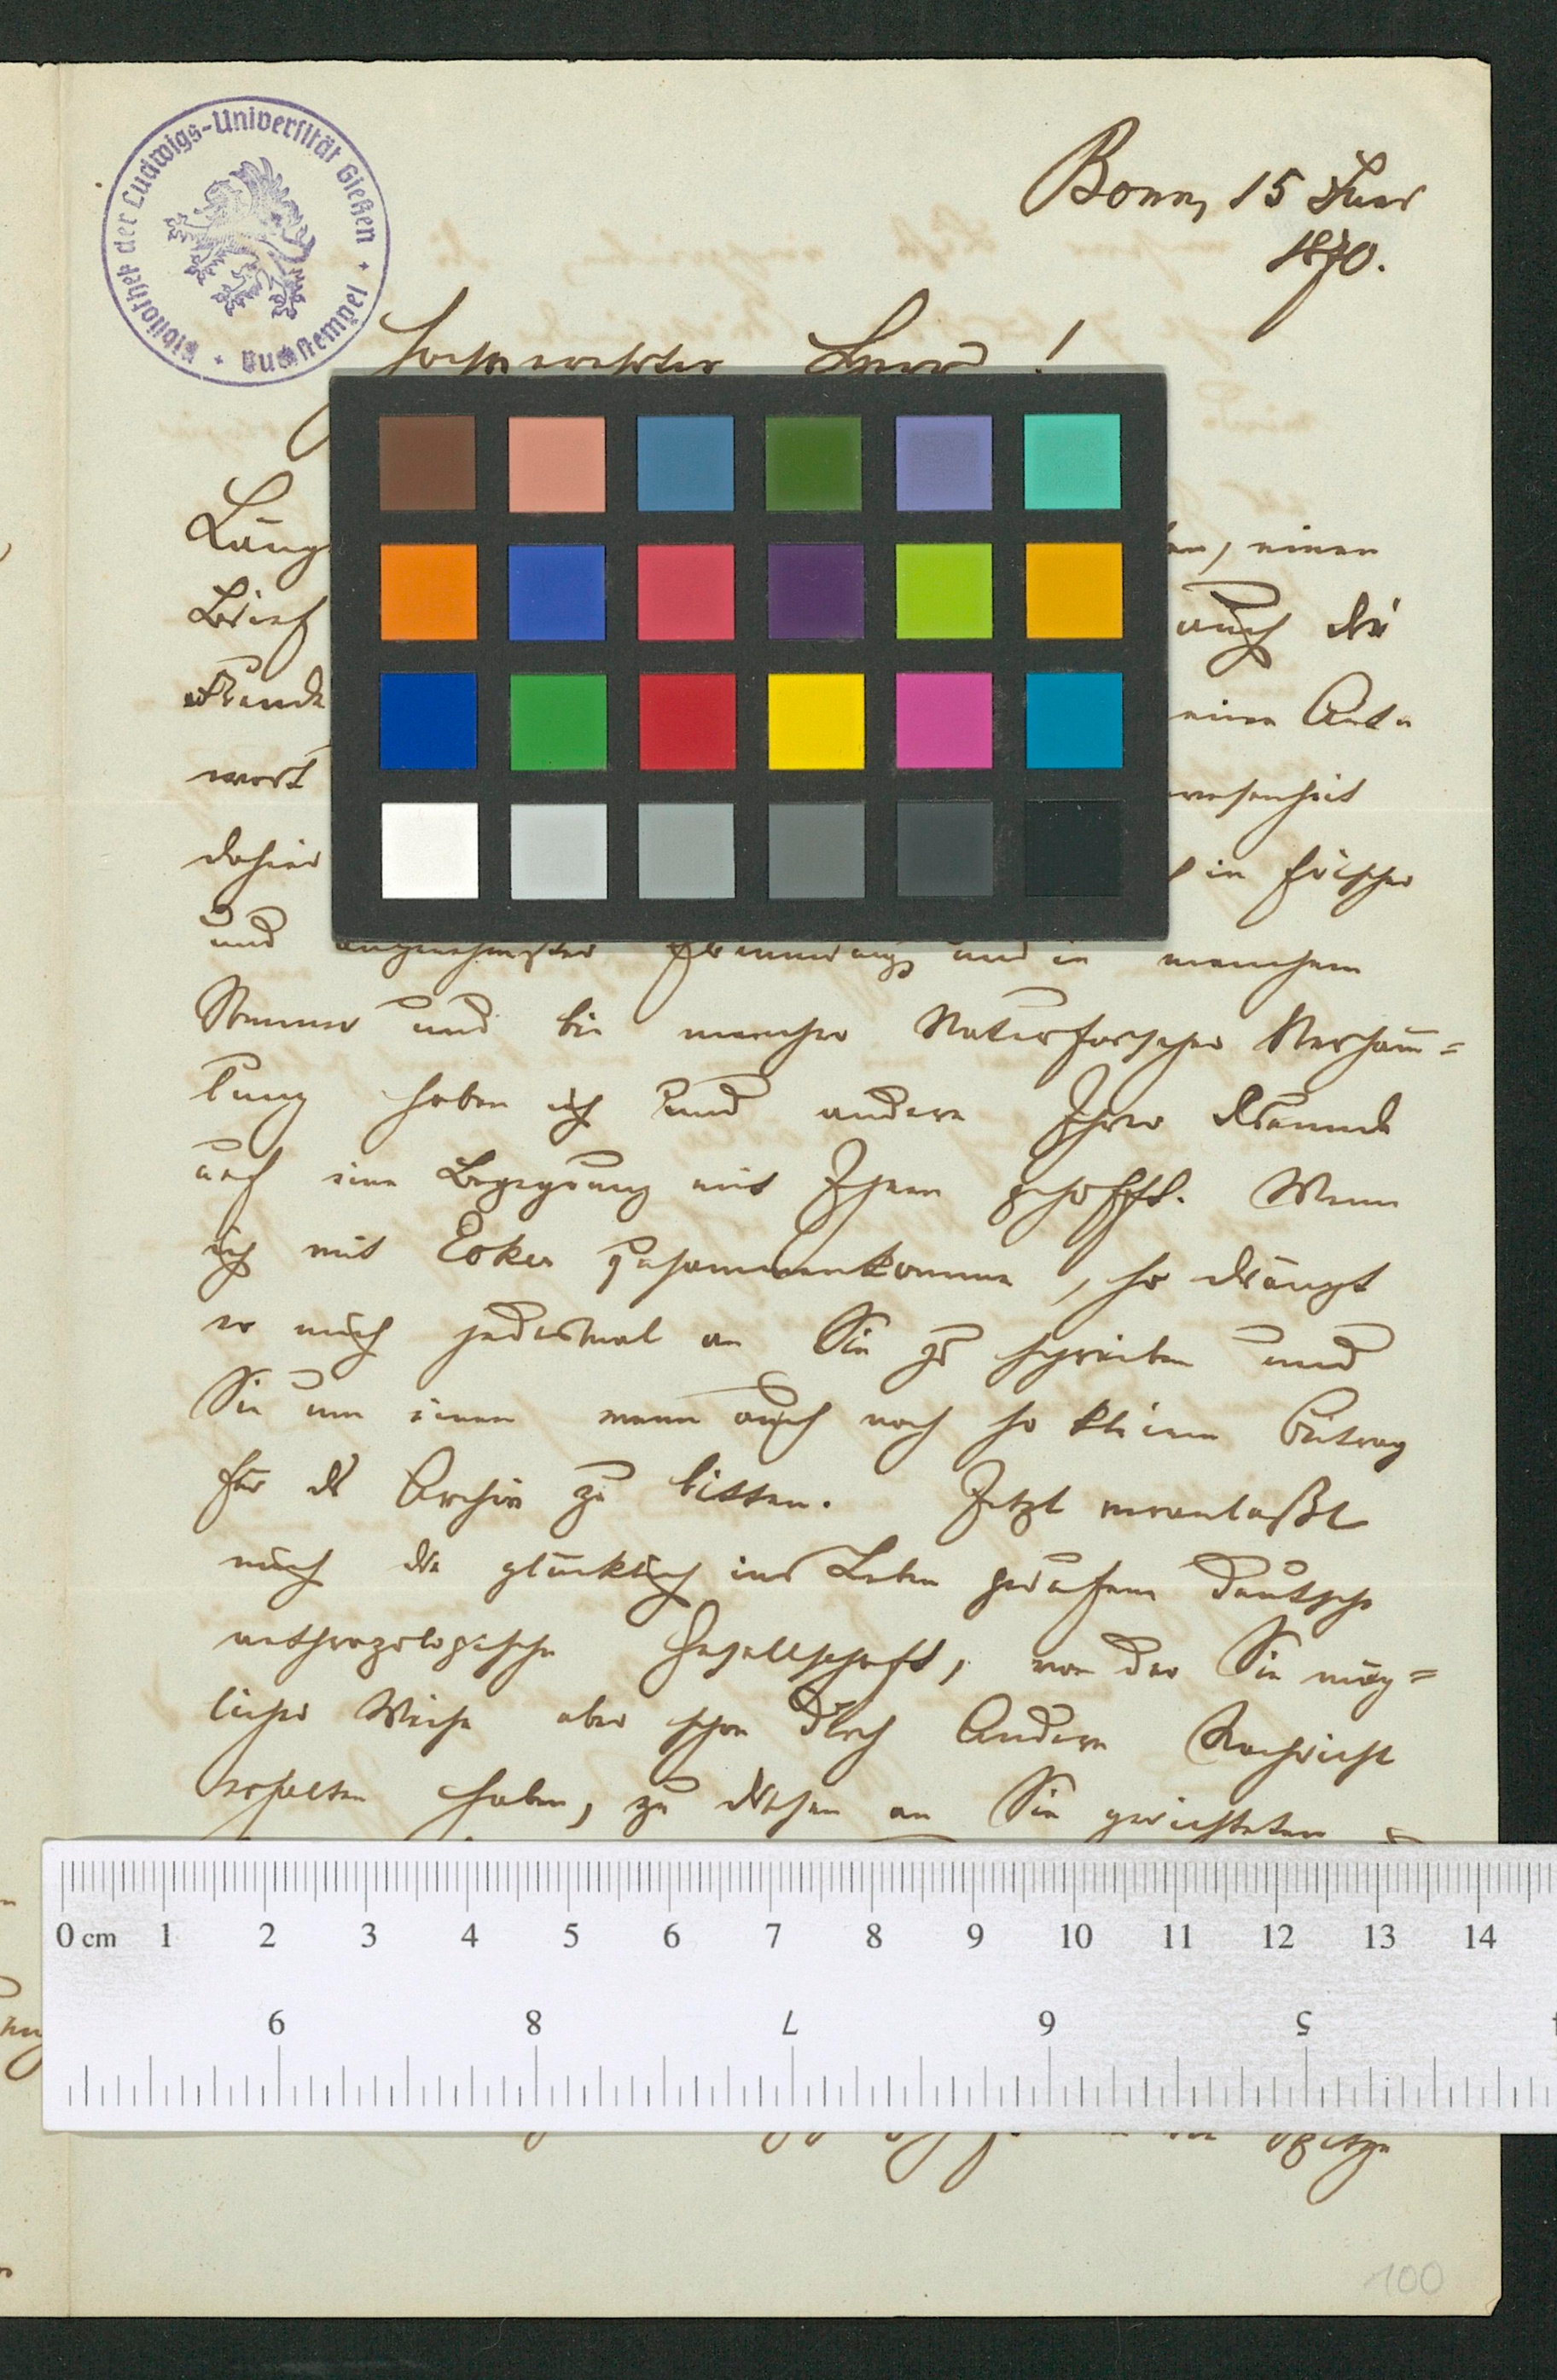 Bibliothek der Ludwigs-Universität Gießen
Buchstempel
Bonn, 15 Juni
1870.
Hochverehrter Freund!
Läng
en, einen
Brief
auch die
Freude
einer Ant-
wort
wesenheit
dahier
in frischer
und angenehmster Erinnerung und in manchem
Sommer und bei mancher Naturforscher Versamm=
lung haben ich und andere Ihrer Freunde
auf eine Begegnung mit Ihnen gehofft. Wenn
ich mit Ecker zusammenkomme, so drängt
er mich jedesmal an Sie zu schreiben und
Sie um einen wenn auch noch so kleinen Beitrag
für das Archiv zu bitten. Jetzt veranlaßt
mich die glücklich ins Leben gerufene deutsche
anthropologische Gesellschaft, von der Sie mög=
licher Weise aber schon durch Andere Nachricht
erhalten haben, zu diesen an Sie gerichteten
0 cm 1 2 3 4 5 6 7 8 9 10 11 12 13 14
9 8 7 6 5
Spitze
100